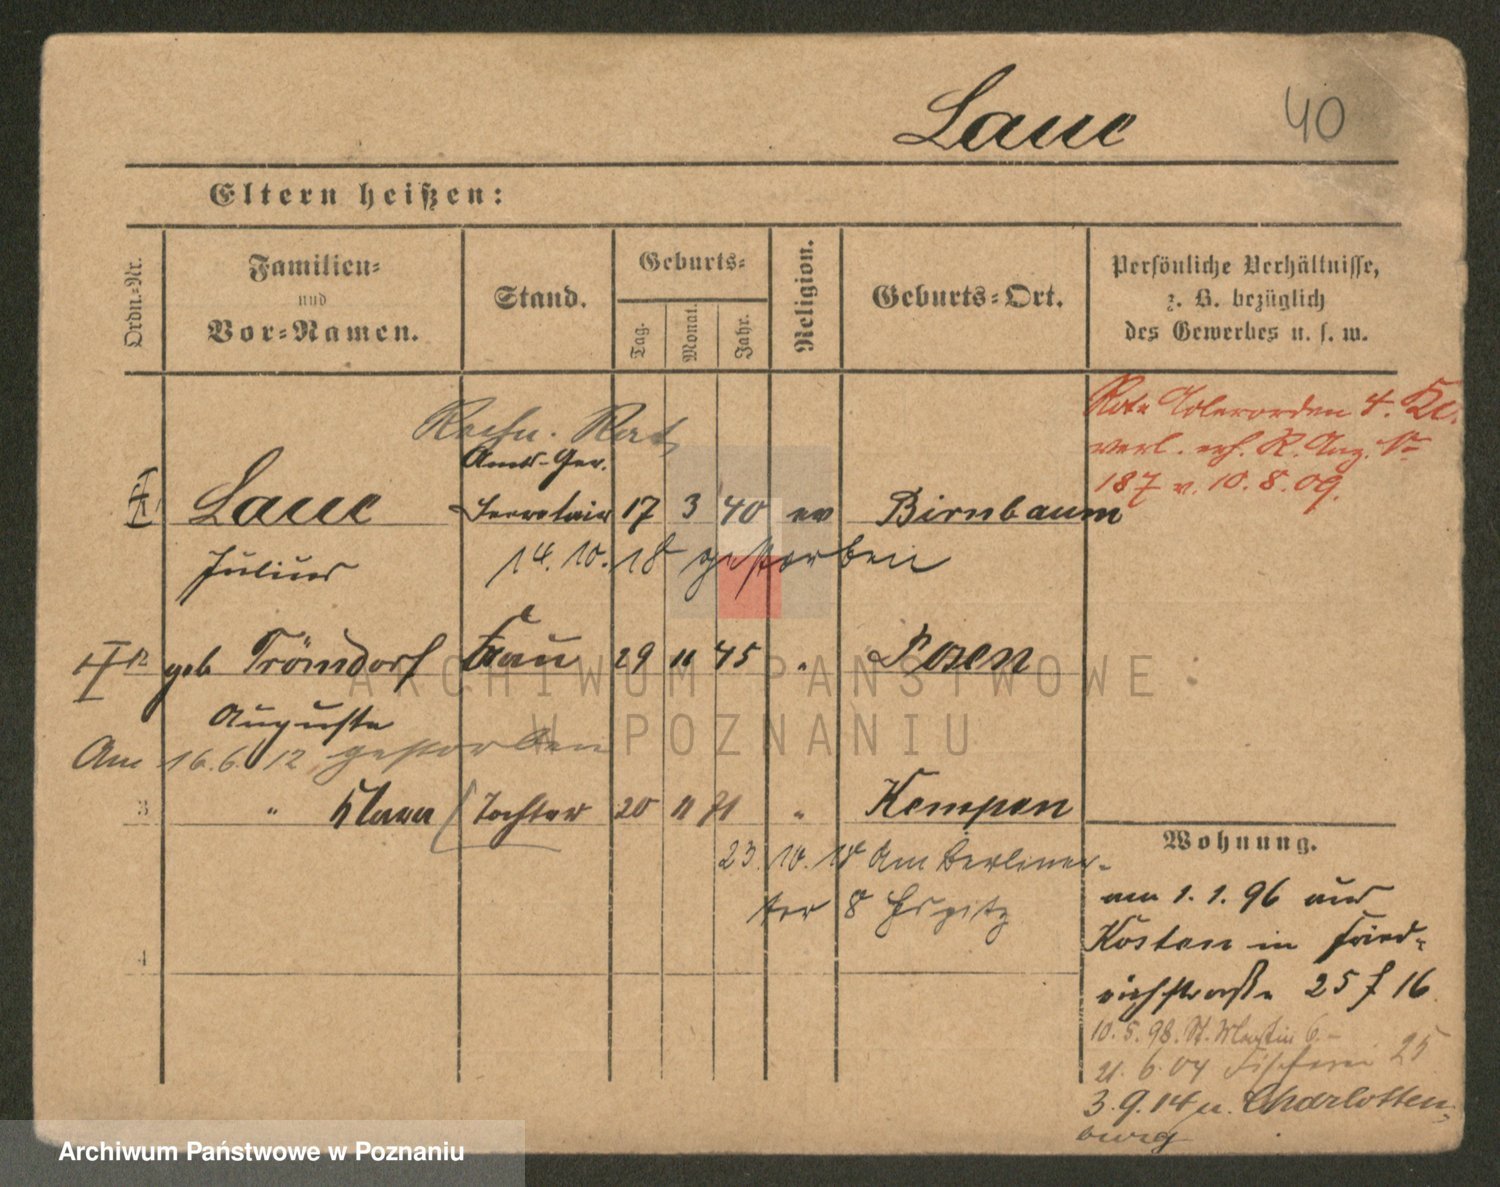 Laue 40
Eltern heißen:
Ordn.-Nr.
Familien-
und
Vor-Namen.
Stand.
Geburts-
Tag.
Monat.
Jahr.
Religion.
Geburts-Ort.
Persönliche Verhältnisse,
z. B. bezüglich
des Gewerbes u. s. w.
Rote Adlerorden 4. Kl.
verl. R. Anz. No
187 v. 10.8.09.
Rechn. Rat
Amts-Ger.
Laue Secretair 17 3 40 ev Birnbaum
Julius 14.10.18 gestorben
geb Trömdorf Frau 29 11 45 " Posen
Auguste
Am 16.6.12 gestorben
3 " Klara Tochter 20 11 71 " Kempen
23.10.18 Am Berliner-
tor 8
4
Wohnung.
am 1.1.96 aus
Kosten in Fried-
richstraße 25 f 16
10.5.98. St. Martin 6
21.6.04 Fischerei 25
3.9.14 n. Charlotten-
burg
ARCHIWUM PAŃSTWOWE
W POZNANIU
Archiwum Państwowe w Poznaniu